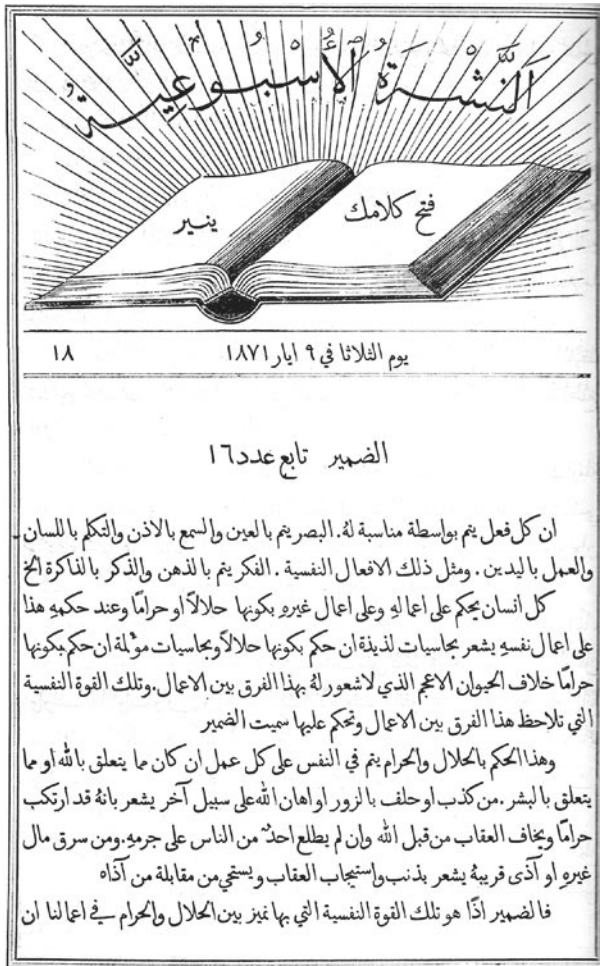 اَلنَّشْرَةُ ٱلْأُسْبُوعِيَّةُ
فتح كلامك
ينير
يوم الثلاثا في ٩ ايار ١٨٧١
١٨
الضمير تابع عدد ١٦
ان كل فعل يتم بواسطة مناسبة لهُ. البصر يتم بالعين والسمع بالاذن والتكلم باللسان
والعمل باليدين. ومثل ذلك الافعال النفسية. الفكر يتم بالذهن والذكر بالذاكرة الخ
كل انسان يحكم على اعمالهِ وعلى اعمال غيرهِ بكونها حلالاً او حرامًا وعند حكمهِ هذا
على اعمال نفسهِ يشعر بحاسيات لذيذة ان حكم بكونها حلالاً وبحاسيات مؤلمة ان حكم بكونها
حرامًا خلاف الحيوان الاعجم الذي لا شعور لهُ بهذا الفرق بين الاعمال. وتلك القوة النفسية
التي تلاحظ هذا الفرق بين الاعمال وتحكم عليها سميت الضمير
وهذا الحكم بالحلال والحرام يتم في النفس على كل عمل ان كان مما يتعلق بالله او مما
يتعلق بالبشر. من كذب او حلف بالزور او اهان الله على سبيل آخر يشعر بانهُ قد ارتكب
حرامًا ويخاف العقاب من قبل الله وان لم يطلع احدٌ من الناس على جرمهِ. ومن سرق مال
غيرهِ او آذى قريبهُ يشعر بذنب واستيجاب العقاب ويستحي من مقابلة من آذاه
فالضمير اذًا هو تلك القوة النفسية التي بها نميز بين الحلال والحرام في اعمالنا ان